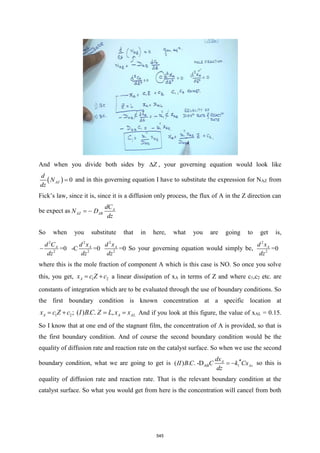 And when you divide both sides by ΔZ , your governing equation would look like
d/dz (N_AZ) = 0 and in this governing equation I have to substitute the expression for NAZ from
Fick's law, since it is, since it is a diffusion only process, the flux of A in the Z direction can
be expect as N_AZ = − D_AB dC_A/dz
So when you substitute that in here, what you are going to get is,
− d²C_A/dz² =0 -C d²x_A/dz² =0 d²x_A/dz² =0 So your governing equation would simply be, d²x_A/dz² =0
where this is the mole fraction of component A which is this case is NO. So once you solve
this, you get, x_A = c₁Z + c₂ a linear dissipation of xA in terms of Z and where c1,c2 etc. are
constants of integration which are to be evaluated through the use of boundary conditions. So
the first boundary condition is known concentration at a specific location at
x_A = c₁Z + c₂; (I)B.C. Z = L, x_A = x_AL And if you look at this figure, the value of xAL = 0.15.
So I know that at one end of the stagnant film, the concentration of A is provided, so that is
the first boundary condition. And of course the second boundary condition would be the
equality of diffusion rate and reaction rate on the catalyst surface. So when we use the second
boundary condition, what we are going to get is (II) B.C. -D_AB C dx_A/dz = −k₁″Cx_A₀ so this is
equality of diffusion rate and reaction rate. That is the relevant boundary condition at the
catalyst surface. So what you would get from here is the concentration will cancel from both
545